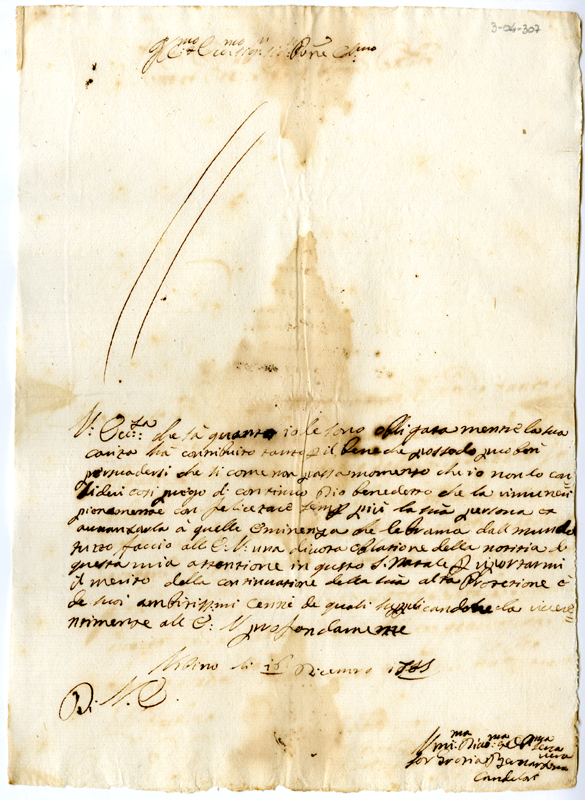 3-04-307
Ill.mo
V: Ecc.za che sà quanto io le sono obligata mentre la sua
carità hà contribuito tanto p il bene che possedo puo ben
persuadersi che si come non passa momento che io non lo con
sideri così prego di continuo Dio benedetto che la rimuneri
pienamente con felicitare semp più la sua persona et
avanzarla à quelle eminenze che le brama dall mundo
tutto faccio all E: V: una divota oblatione della notitia di
questa mia attentione in questo S. Natale p riportarmi
il merito della continuatione della sua alta Protetione è
de suoi ambitissimi cenni de quali supplicandola la river
ntimente all E: V profondamente
li 16 Dicembre
Di V. E.
Um.ma Div.ma
Sor Maria Bernardina
Candelar